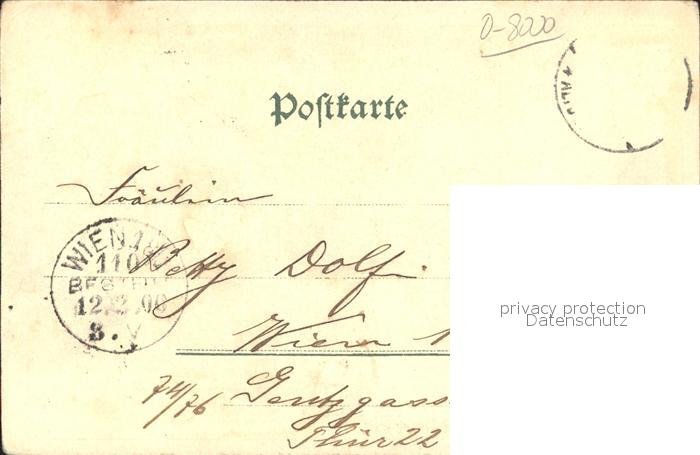 D-8000
Postkarte
Fräulein
Betty Dolf
Wien
74/76 Gentzgass
Thür 22
WIEN
110
BESTELLT
12.
8. V
privacy protection
Datenschutz